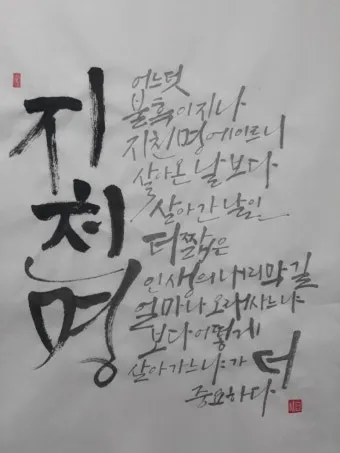 지천명
어느덧
불혹이 지나
지천명에 이르니
살아온 날보다
살아갈 날이
더 짧은
인생의 내리막길
얼마나 오래 사느냐
보다 어떻게
살아가느냐가 더
중요하다.